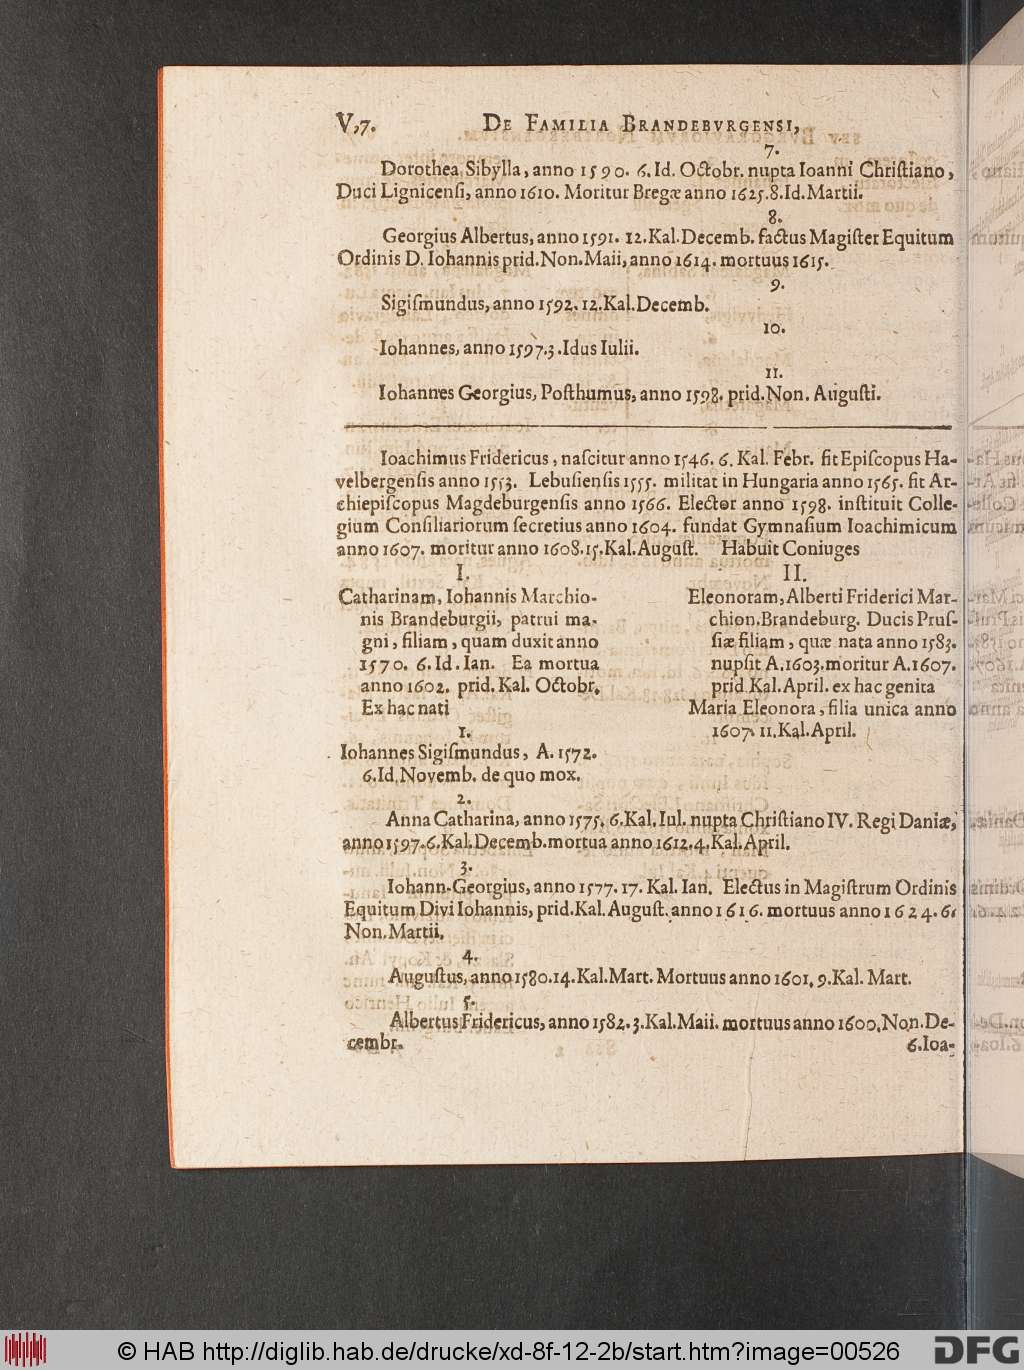 V,7. DE FAMILIA BRANDEBVRGENSI,
7.
Dorothea Sibylla, anno 1590. 6. Id. Octobr. nupta Ioanni Chriſtiano,
Duci Lignicenſi, anno 1610. Moritur Bregæ anno 1625. 8. Id. Martii.
8.
Georgius Albertus, anno 1591. 12. Kal. Decemb. factus Magiſter Equitum
Ordinis D. Iohannis prid. Non. Maii, anno 1614. mortuus 1615.
9.
Sigiſmundus, anno 1592. 12. Kal. Decemb.
10.
Iohannes, anno 1597. 3. Idus Iulii.
11.
Iohannes Georgius, Poſthumus, anno 1598. prid. Non. Auguſti.
Ioachimus Fridericus, naſcitur anno 1546. 6. Kal. Febr. fit Epiſcopus Ha-
velbergenſis anno 1553. Lebuſienſis 1555. militat in Hungaria anno 1565. fit Ar-
chiepiſcopus Magdeburgenſis anno 1566. Elector anno 1598. inſtituit Colle-
gium Conſiliariorum ſecretius anno 1604. fundat Gymnaſium Ioachimicum
anno 1607. moritur anno 1608. 15. Kal. Auguſt. Habuit Coniuges
I.
Catharinam, Iohannis Marchio-
nis Brandeburgii, patrui ma-
gni, filiam, quam duxit anno
1570. 6. Id. Ian. Ea mortua
anno 1602. prid. Kal. Octobr.
Ex hac nati
1.
Iohannes Sigiſmundus, A. 1572.
6. Id. Novemb. de quo mox.
II.
Eleonoram, Alberti Friderici Mar-
chion. Brandeburg. Ducis Pruſ-
ſiæ filiam, quæ nata anno 1583.
nupſit A. 1603. moritur A. 1607.
prid Kal. April. ex hac genita
Maria Eleonora, filia unica anno
1607. 11. Kal. April.
2.
Anna Catharina, anno 1575. 6. Kal. Iul. nupta Chriſtiano IV. Regi Daniæ,
anno 1597. 6. Kal. Decemb. mortua anno 1612. 4. Kal. April.
3.
Iohann-Georgius, anno 1577. 17. Kal. Ian. Electus in Magiſtrum Ordinis
Equitum Divi Iohannis, prid. Kal. Auguſt. anno 1616. mortuus anno 1624. 6.
Non. Martii.
4.
Auguſtus, anno 1580. 14. Kal. Mart. Mortuus anno 1601. 9. Kal. Mart.
5.
Albertus Fridericus, anno 1582. 3. Kal. Maii. mortuus anno 1600. Non. De-
cembr.
6. Ioa-
© HAB http://diglib.hab.de/drucke/xd-8f-12-2b/start.htm?image=00526
DFG